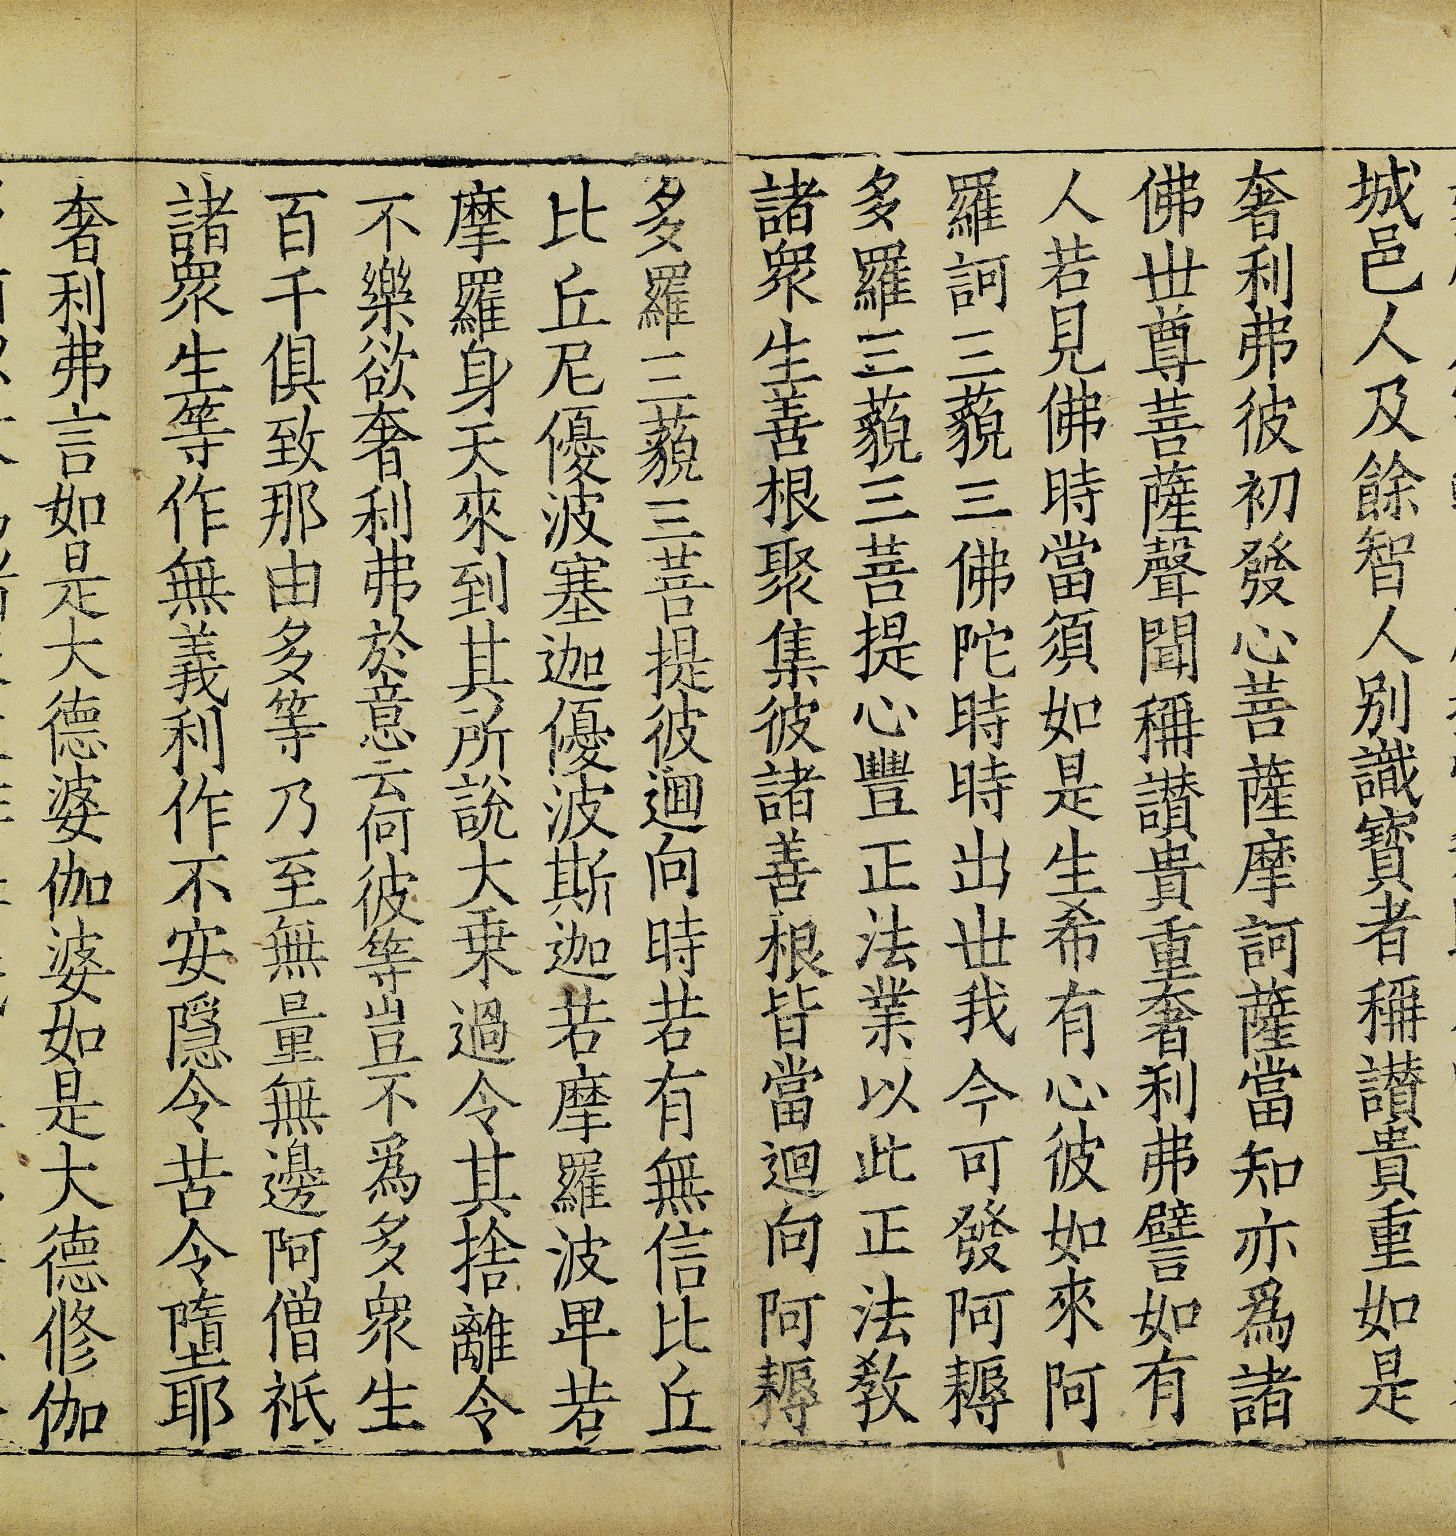 城邑人及餘智人別識寶者稱讃貴重如是
奢利弗彼初發心菩薩摩訶薩當知亦爲諸
佛世尊菩薩聲聞稱讃貴重奢利弗譬如有
人若見佛時當須如是生希有心彼如來阿
羅訶三藐三佛陀時時出世我今可發阿耨
多羅三藐三菩提心豐正法業以此正法教
諸衆生善根聚集彼諸善根皆當迴向阿耨
多羅三藐三菩提彼迴向時若有無信比丘
比丘尼優波塞迦優波斯迦若摩羅波卑若
摩羅身天來到其所說大乗過令其捨離令
不樂欲奢利弗於意云何彼等豈不爲多衆生
百千俱致那由多等乃至無量無邊阿僧祇
諸衆生等作無義利作不安隱令苦令墮耶
奢利弗言如是大德婆伽婆如是大德修伽